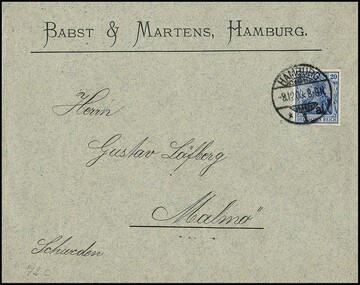 BABST & MARTENS, HAMBURG.
HAMBURG
20
REICH
Herrn
Gustav Löfberg
Malmö
Schweden